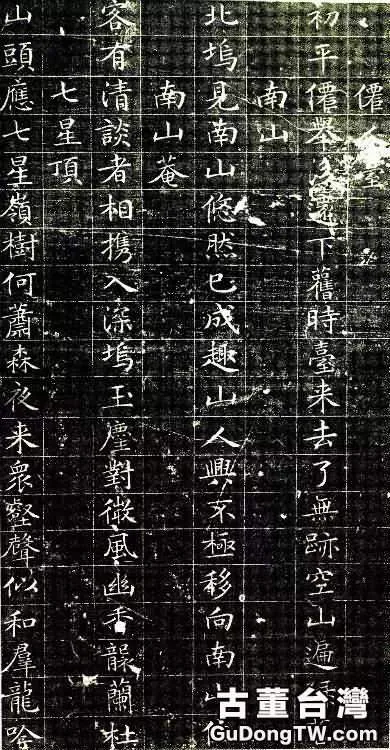 僊人臺
初平僊舉下舊時臺来去了無跡空山遍
南山
北塢見南山悠然已成趣山人興不極移向南山
南山菴
客有清談者相携入深塢玉麈對微風幽香蘭杜
七星頂
山頭應七星嶺樹何蕭森夜来衆壑聲似和羣龍吟
古董台灣
GuDongTW.com